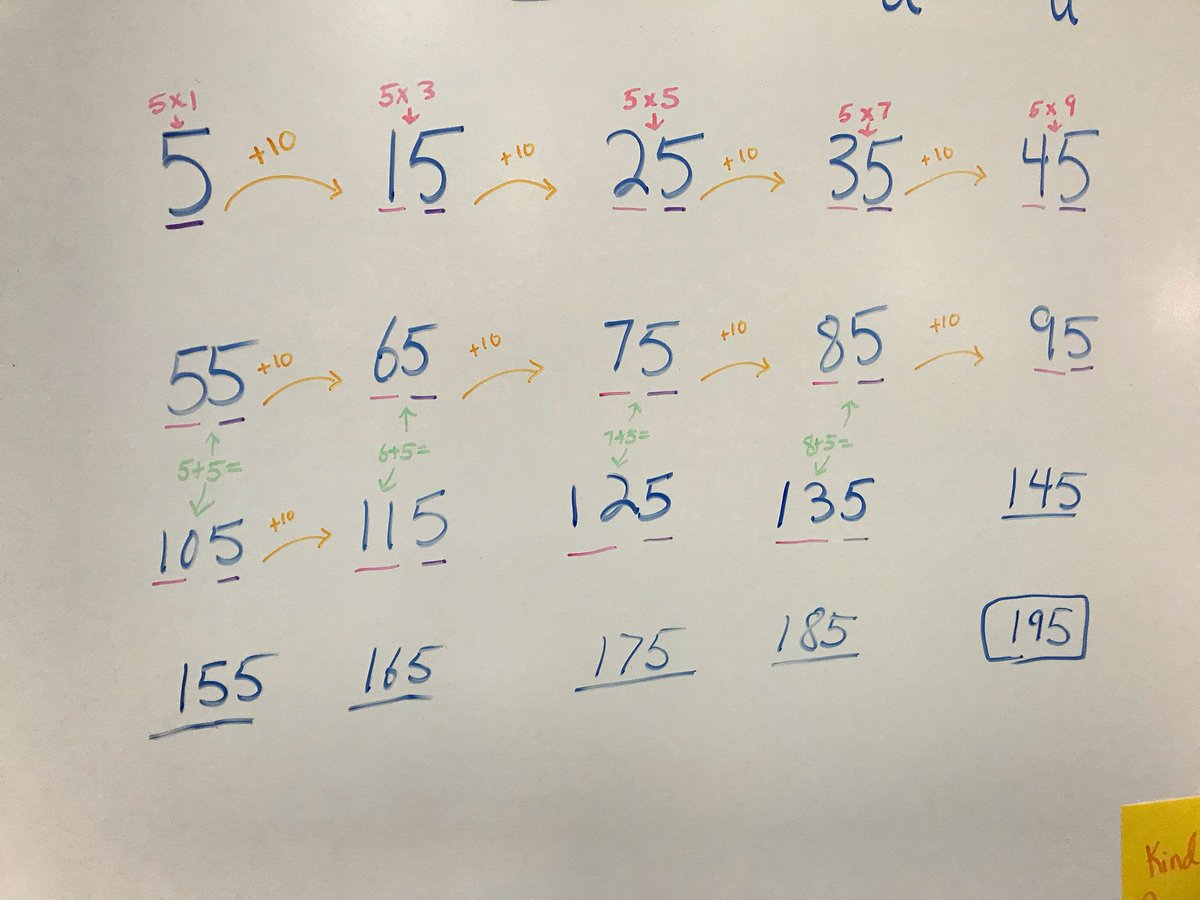 5x1 5x3 5x5 5x7 5x9
5 +10 15 +10 25 +10 35 +10 45
55 +10 65 +10 75 +10 85 +10 95
5+5= 6+5= 7+5= 8+5=
105 +10 115 125 135 145
155 165 175 185 195
Kind